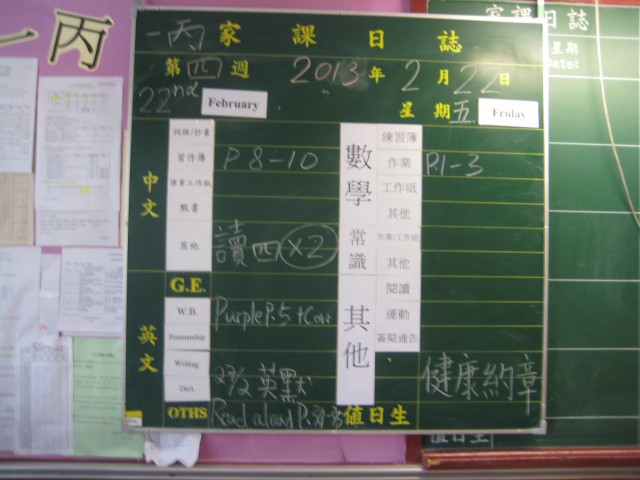 一丙
一丙家課日誌
第四週 2013年2月22日
22nd February 星期五 Friday
中文
習作簿 P 8-10
默書
其他 讀四×2
數學
練習簿
作業 P.1-3
工作紙
其他
常識
作業/工作紙
其他
英文
G.E.
W.B. Purple P.5 + Cor
Penmanship
Writing
Dict. 27/2 英默
OTHS Read aloud P.
其他
閱讀
運動
簽閱通告
健康約章
值日生
家課日誌
星期
Date:
值日生